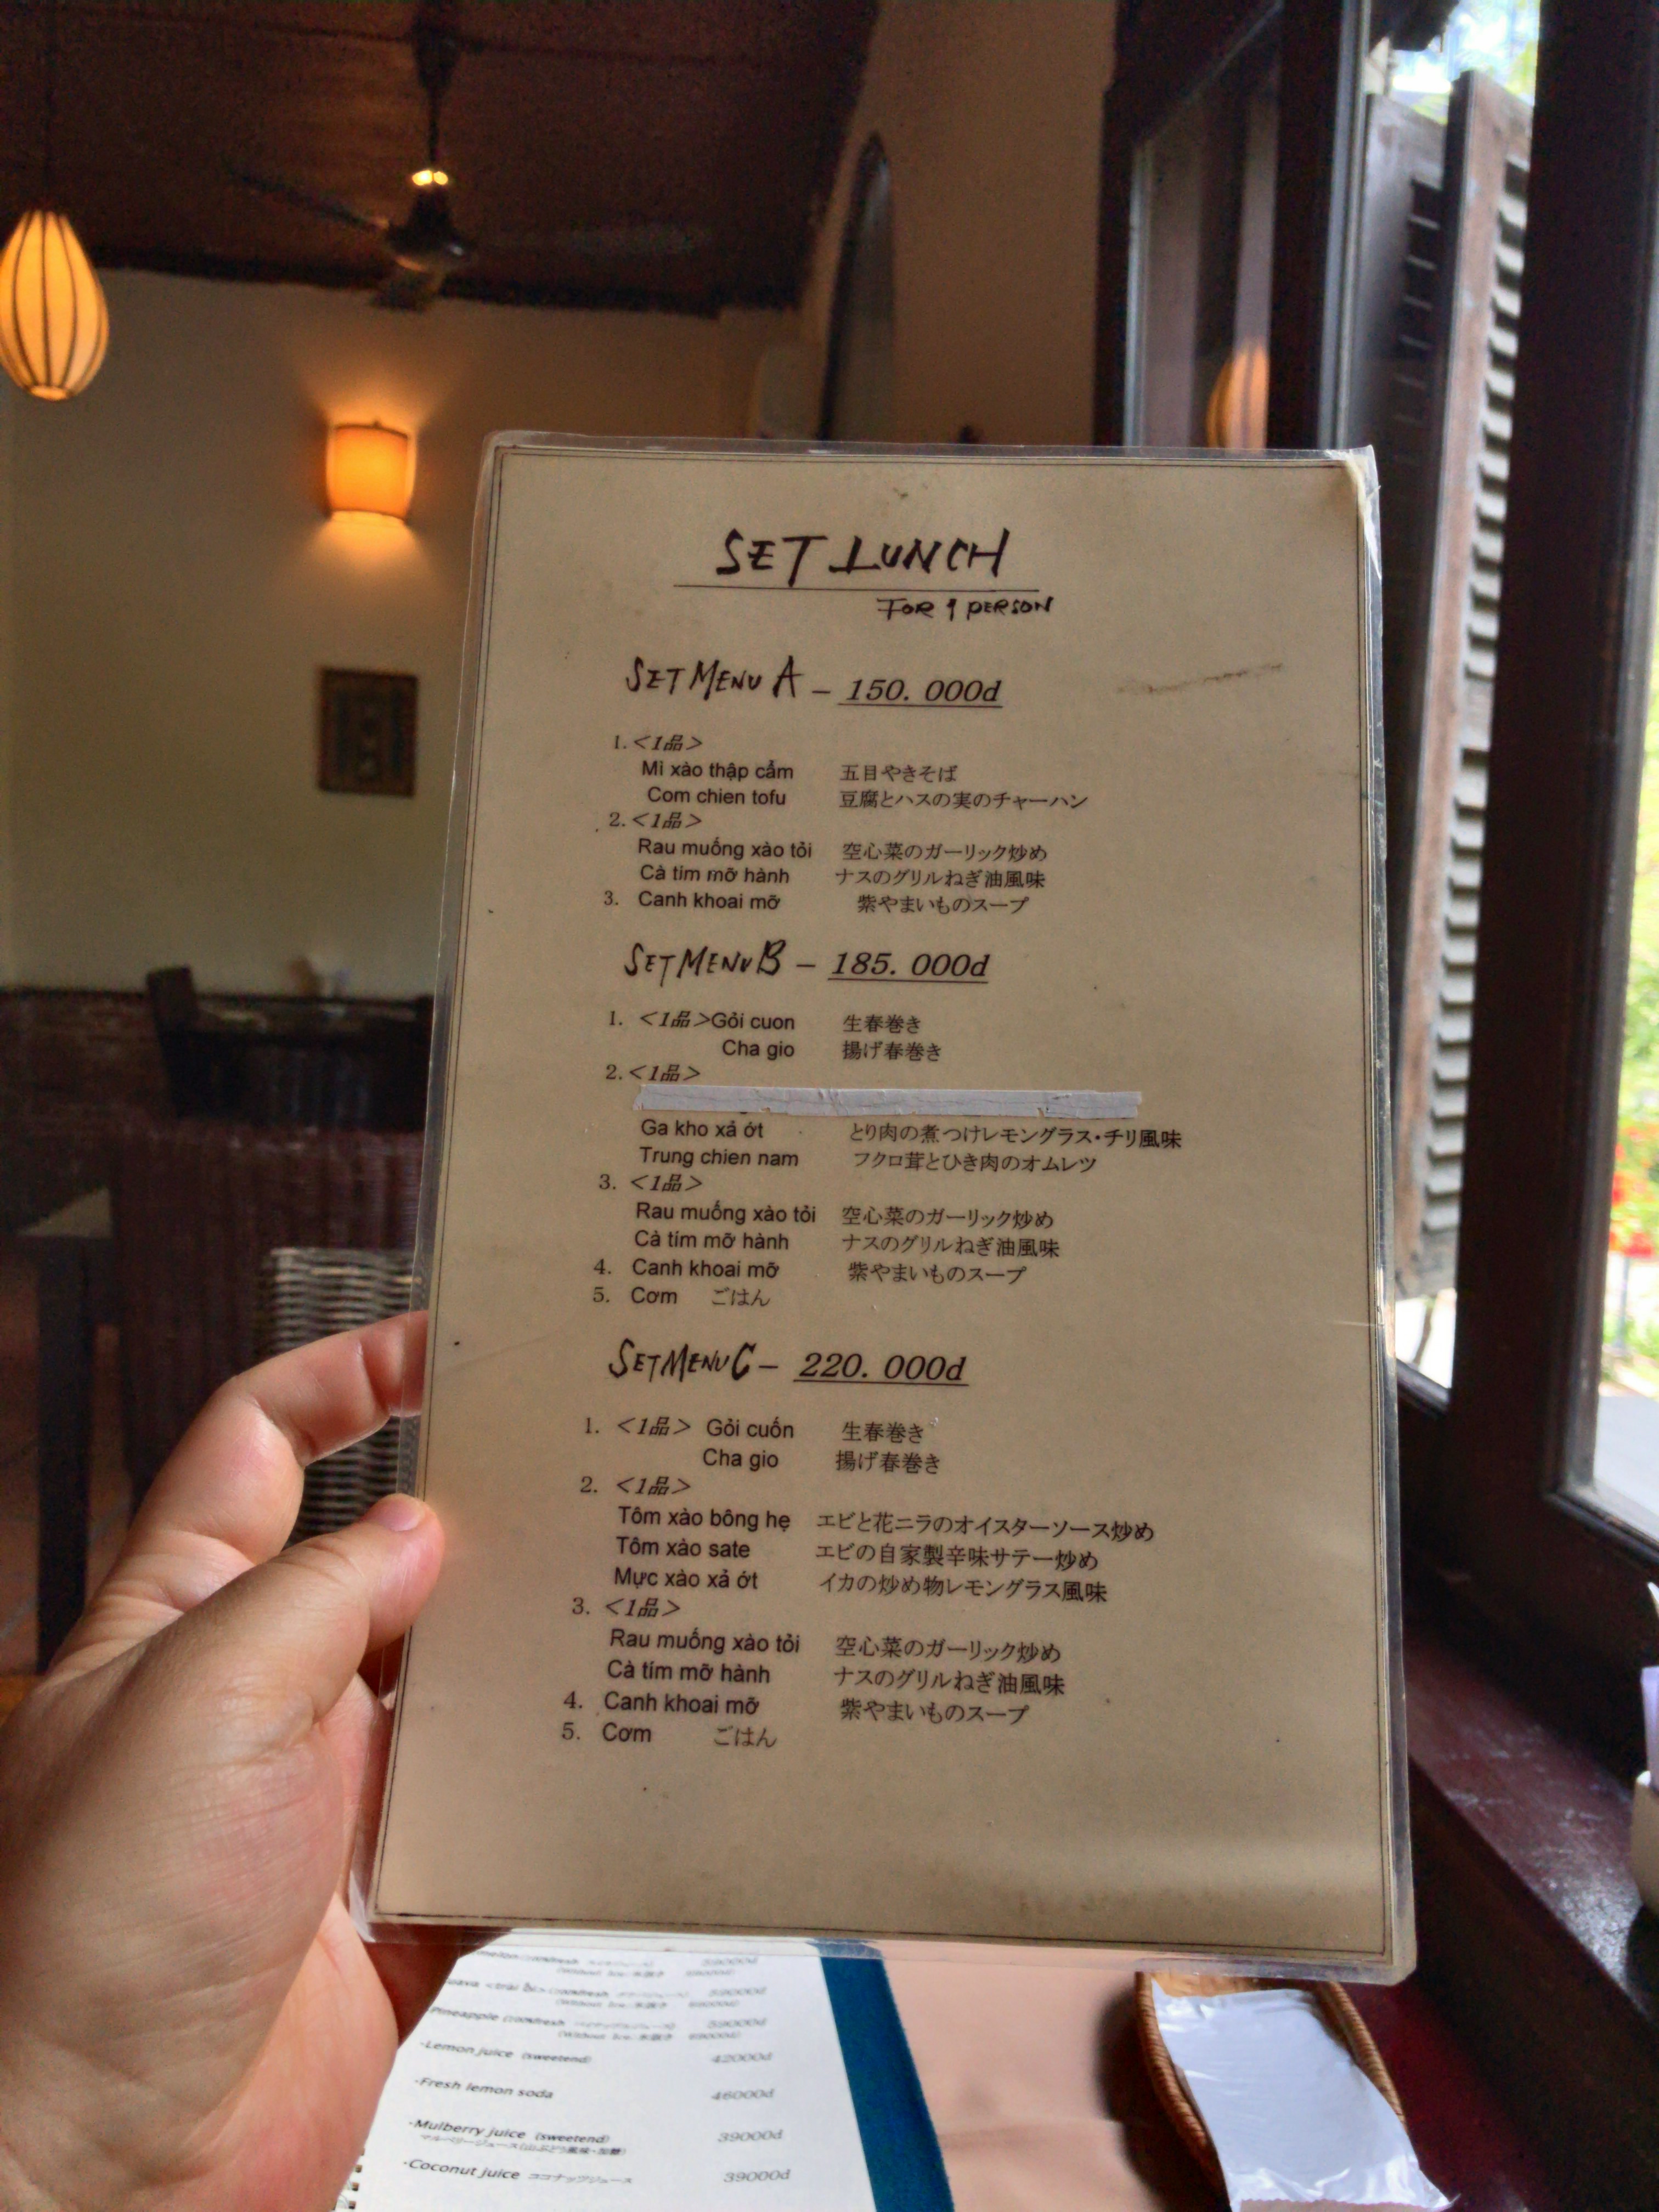 SET LUNCH
FOR 1 PERSON
SET MENU A – 150. 000d
1. <1品>
Mì xào thập cẩm 五目やきそば
Com chien tofu 豆腐とハスの実のチャーハン
2. <1品>
Rau muống xào tỏi 空心菜のガーリック炒め
Cà tím mỡ hành ナスのグリルねぎ油風味
3. Canh khoai mỡ 紫やまいものスープ
SET MENU B – 185. 000d
1. <1品>Gỏi cuon 生春巻き
Cha gio 揚げ春巻き
2. <1品>
Ga kho xả ớt とり肉の煮つけレモングラス・チリ風味
Trung chien nam フクロ茸とひき肉のオムレツ
3. <1品>
Rau muống xào tỏi 空心菜のガーリック炒め
Cà tím mỡ hành ナスのグリルねぎ油風味
4. Canh khoai mỡ 紫やまいものスープ
5. Cơm ごはん
SET MENU C – 220. 000d
1. <1品> Gỏi cuốn 生春巻き
Cha gio 揚げ春巻き
2. <1品>
Tôm xào bông hẹ エビと花ニラのオイスターソース炒め
Tôm xào sate エビの自家製辛味サテー炒め
Mực xào xả ớt イカの炒め物レモングラス風味
3. <1品>
Rau muống xào tỏi 空心菜のガーリック炒め
Cà tím mỡ hành ナスのグリルねぎ油風味
4. Canh khoai mỡ 紫やまいものスープ
5. Cơm ごはん
Pineapple 59000d
·Lemon juice (sweetend) 42000d
·Fresh lemon soda 46000d
·Mulberry juice (sweetend) 39000d
·Coconut juice ココナッツジュース 39000d